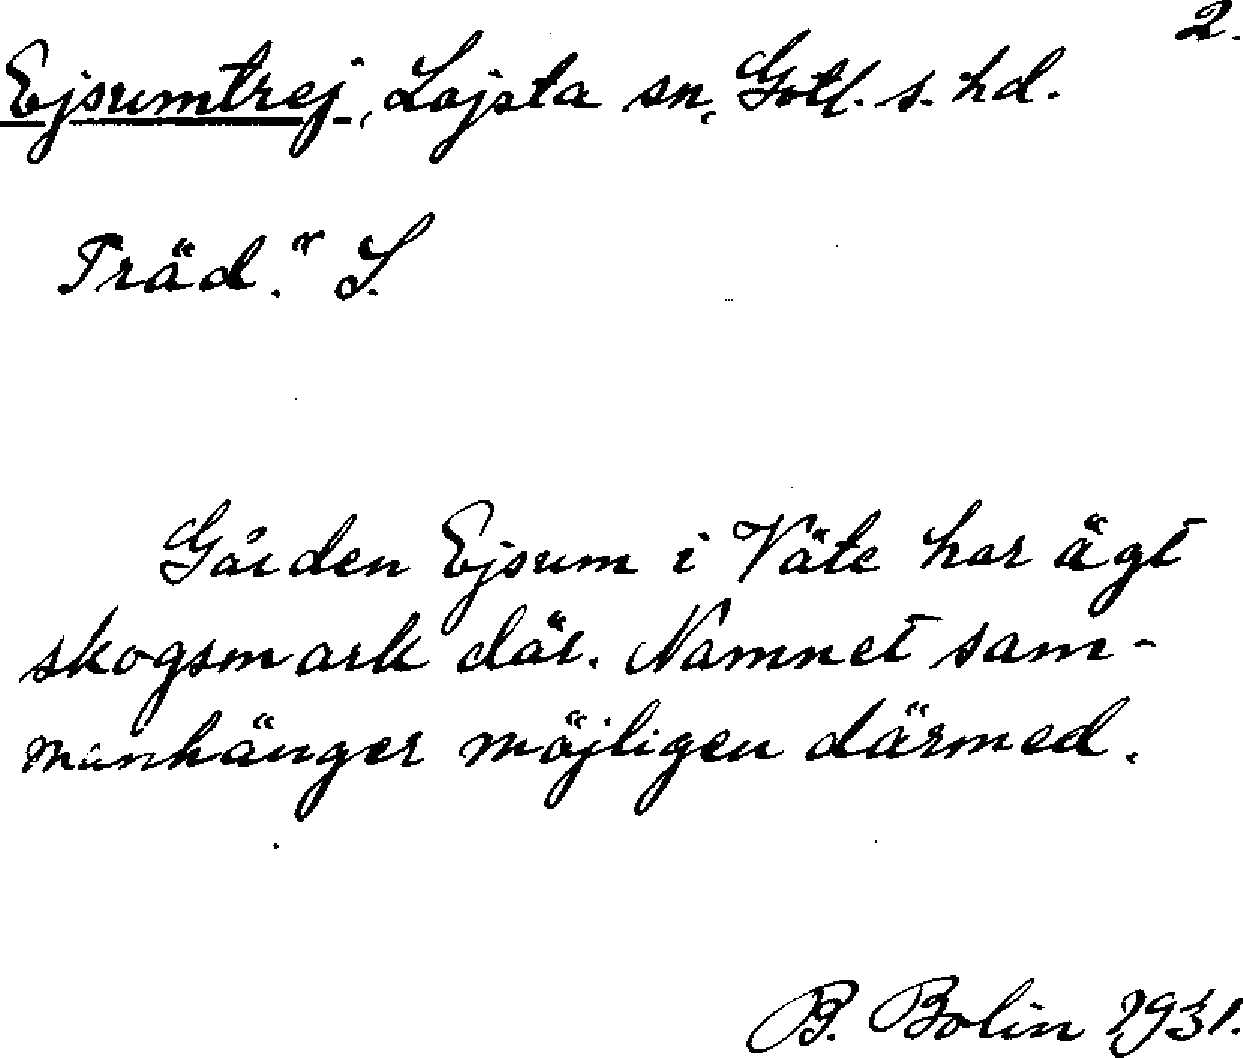 2.
Ejsumtrej, Lojsta sn, Gotl. s. hd.
Träd." L.
Gården Ejsum i Väte har ägt
skogsmark där. Namnet sam-
manhänger möjligen därmed.
B. Bolin 1931.